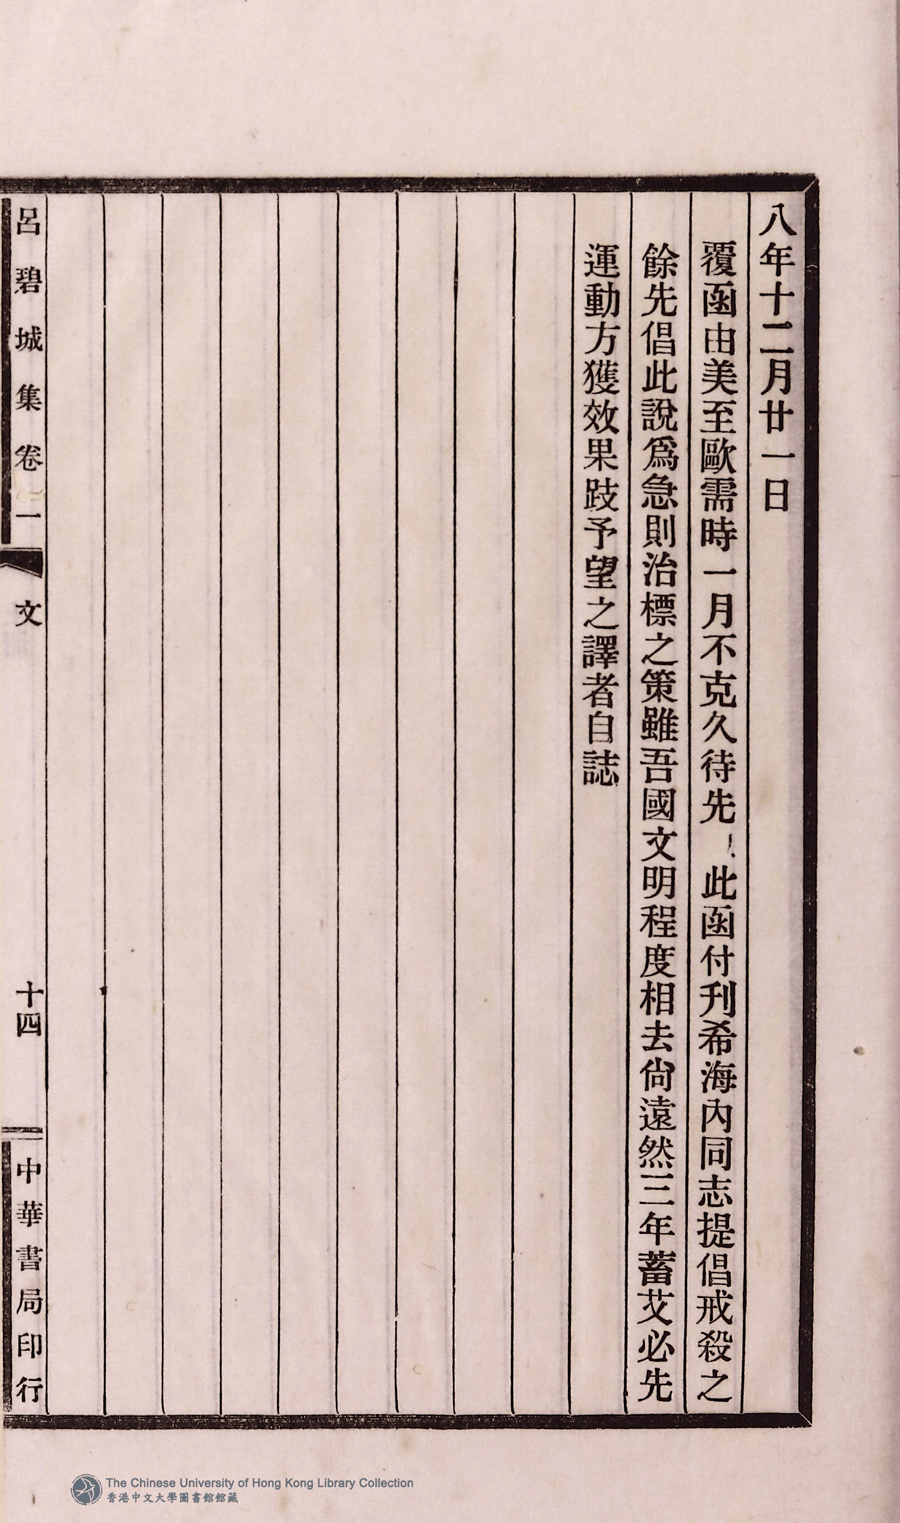 八年十二月廿一日
覆函由美至歐需時一月不克久待先 此函付刋希海內同志提倡戒殺之
餘先倡此說爲急則治標之策雖吾國文明程度相去尙遠然三年蓄艾必先
運動方獲效果跂予望之譯者自誌
呂碧城集卷一 文 十四 中華書局印行
The Chinese University of Hong Kong Library Collection
香港中文大學圖書館館藏